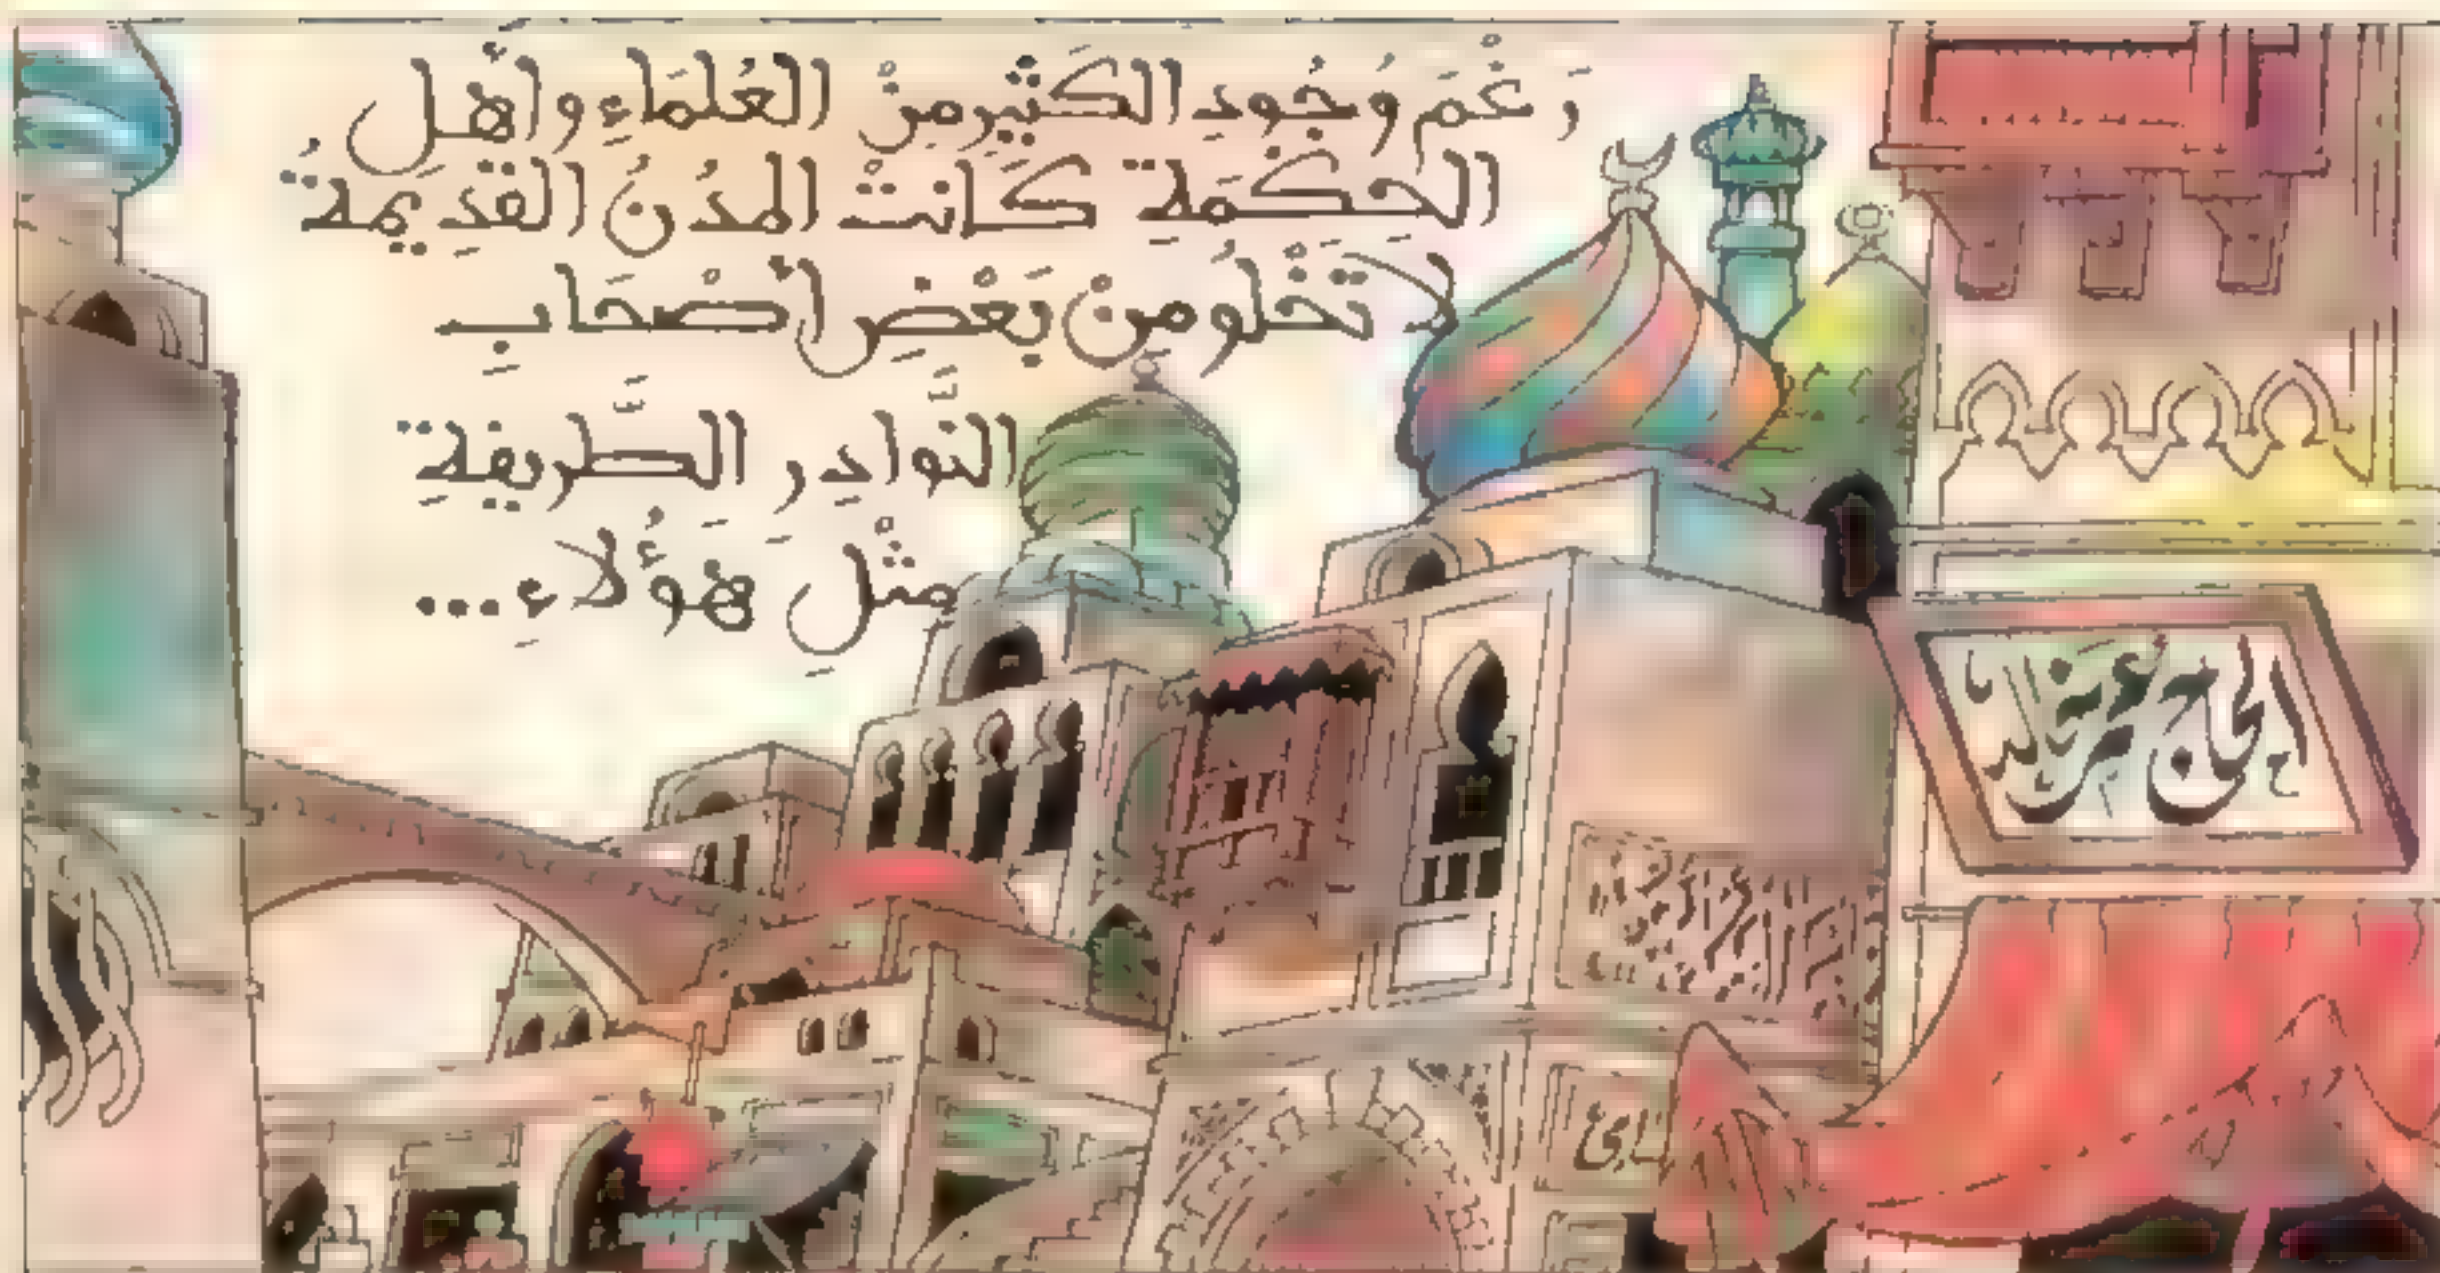 رَغْمَ وُجُودِ الكَثِيرِ مِنْ العُلَمَاءِ وأَهْلِ
الحِكْمَةِ كَانَتْ المدُنُ القَدِيمَةُ
لاَ تَخْلُو مِنْ بَعْضِ أَصْحَابِ
النَّوادِرِ الطَّرِيفَةِ
مِثْلِ هَؤُلاَءِ...